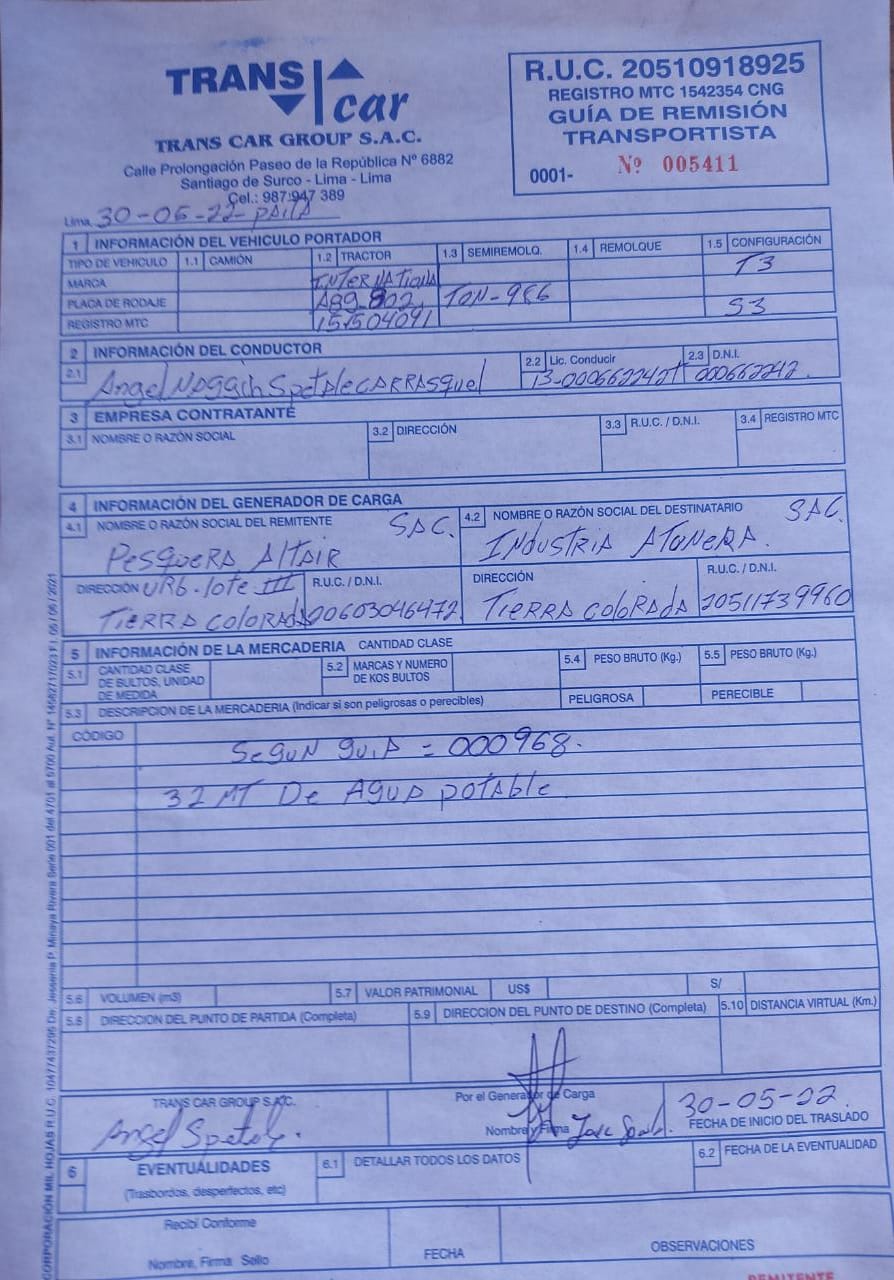 TRANS car
TRANS CAR GROUP S.A.C.
Calle Prolongación Paseo de la República Nº 6882
Santiago de Surco - Lima - Lima
Cel.: 987 947 389
R.U.C. 20510918925
REGISTRO MTC 1542354 CNG
GUÍA DE REMISIÓN
TRANSPORTISTA
0001- Nº 005411
Lima, 30-05-22- PAITA
1 INFORMACIÓN DEL VEHICULO PORTADOR
TIPO DE VEHICULO 1.1 CAMIÓN 1.2 TRACTOR 1.3 SEMIREMOLQ. 1.4 REMOLQUE 1.5 CONFIGURACIÓN
T3
MARCA INTERNATIONA
PLACA DE RODAJE A89-802 TON-986 S3
REGISTRO MTC 151504091
2 INFORMACIÓN DEL CONDUCTOR
2.1 Angel Naggih Spetale CARRASquel 2.2 Lic. Conducir 2.3 D.N.I.
000662242
3 EMPRESA CONTRATANTE
3.1 NOMBRE O RAZÓN SOCIAL 3.2 DIRECCIÓN 3.3 R.U.C. / D.N.I. 3.4 REGISTRO MTC
4 INFORMACIÓN DEL GENERADOR DE CARGA
4.1 NOMBRE O RAZÓN SOCIAL DEL REMITENTE 4.2 NOMBRE O RAZÓN SOCIAL DEL DESTINATARIO
PESQUERA ALTAIR SAC. INDUSTRIA ATUNERA. SAC.
DIRECCIÓN URB. lote III R.U.C. / D.N.I. DIRECCIÓN R.U.C. / D.N.I.
TIERRA COLORADA 20603046472 TIERRA COLORADA 20511739960
5 INFORMACIÓN DE LA MERCADERIA CANTIDAD CLASE
5.1 CANTIDAD CLASE DE BULTOS, UNIDAD DE MEDIDA 5.2 MARCAS Y NUMERO DE KOS BULTOS 5.4 PESO BRUTO (Kg.) 5.5 PESO BRUTO (Kg.)
5.3 DESCRIPCION DE LA MERCADERIA (Indicar si son peligrosas o perecibles) PELIGROSA PERECIBLE
CÓDIGO
SEGUN GUIA = 000968.
32 MT De AGUA POTABLE
5.6 VOLUMEN (m3) 5.7 VALOR PATRIMONIAL US$ S/
5.8 DIRECCION DEL PUNTO DE PARTIDA (Completa) 5.9 DIRECCION DEL PUNTO DE DESTINO (Completa) 5.10 DISTANCIA VIRTUAL (Km.)
TRANS CAR GROUP S.A.C. Por el Generador de Carga 30-05-22
Angel Spetale. Nombre y Firma FECHA DE INICIO DEL TRASLADO
6 EVENTUALIDADES 6.1 DETALLAR TODOS LOS DATOS 6.2 FECHA DE LA EVENTUALIDAD
(Trasbordos, desperfectos, etc)
Recibí Conforme
Nombre, Firma Sello FECHA OBSERVACIONES
REMITENTE